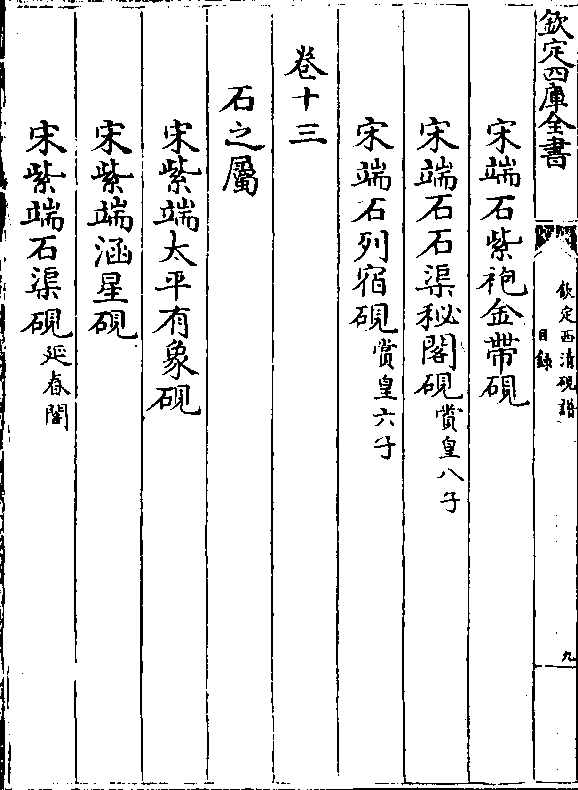 欽定四庫全書
欽定西清硯譜
目錄
九
宋端石紫袍金帶硯
宋端石石渠秘閣硯賞皇八子
宋端石列宿硯賞皇六子
卷十三
石之屬
宋紫端太平有象硯
宋紫端涵星硯
宋紫端石渠硯延春閣